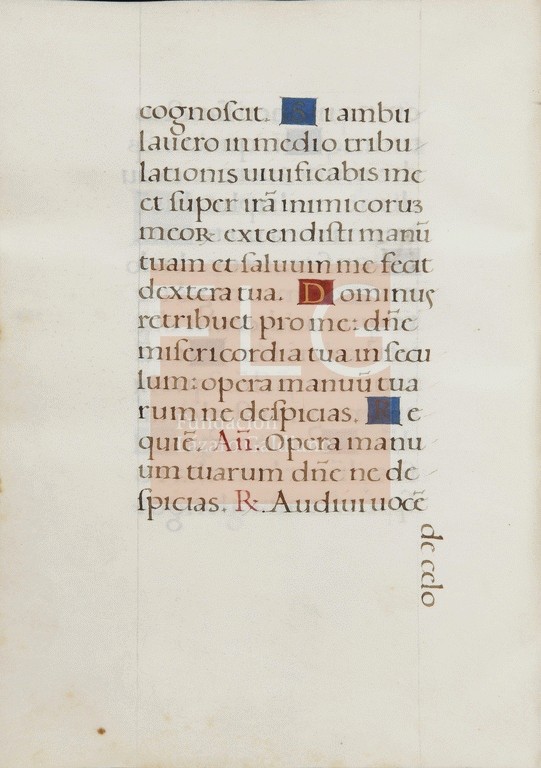 cognoſcit. Si ambu
lauero in medio tribu
lationis uiuificabis me
et ſuper irã inimicoruꝫ
meoꝝ extendiſti manũ
tuam et ſaluum me fecit
dextera tua. Dominus
retribuet pro me: dñe
miſericordia tua in ſecu
lum: opera manuũ tua
rum ne deſpicias. Re
quiẽ. Añ. Opera manu
um tuarum dñe ne de
ſpicias. R. Audiui uocẽ
de celo
FLG
Fundación